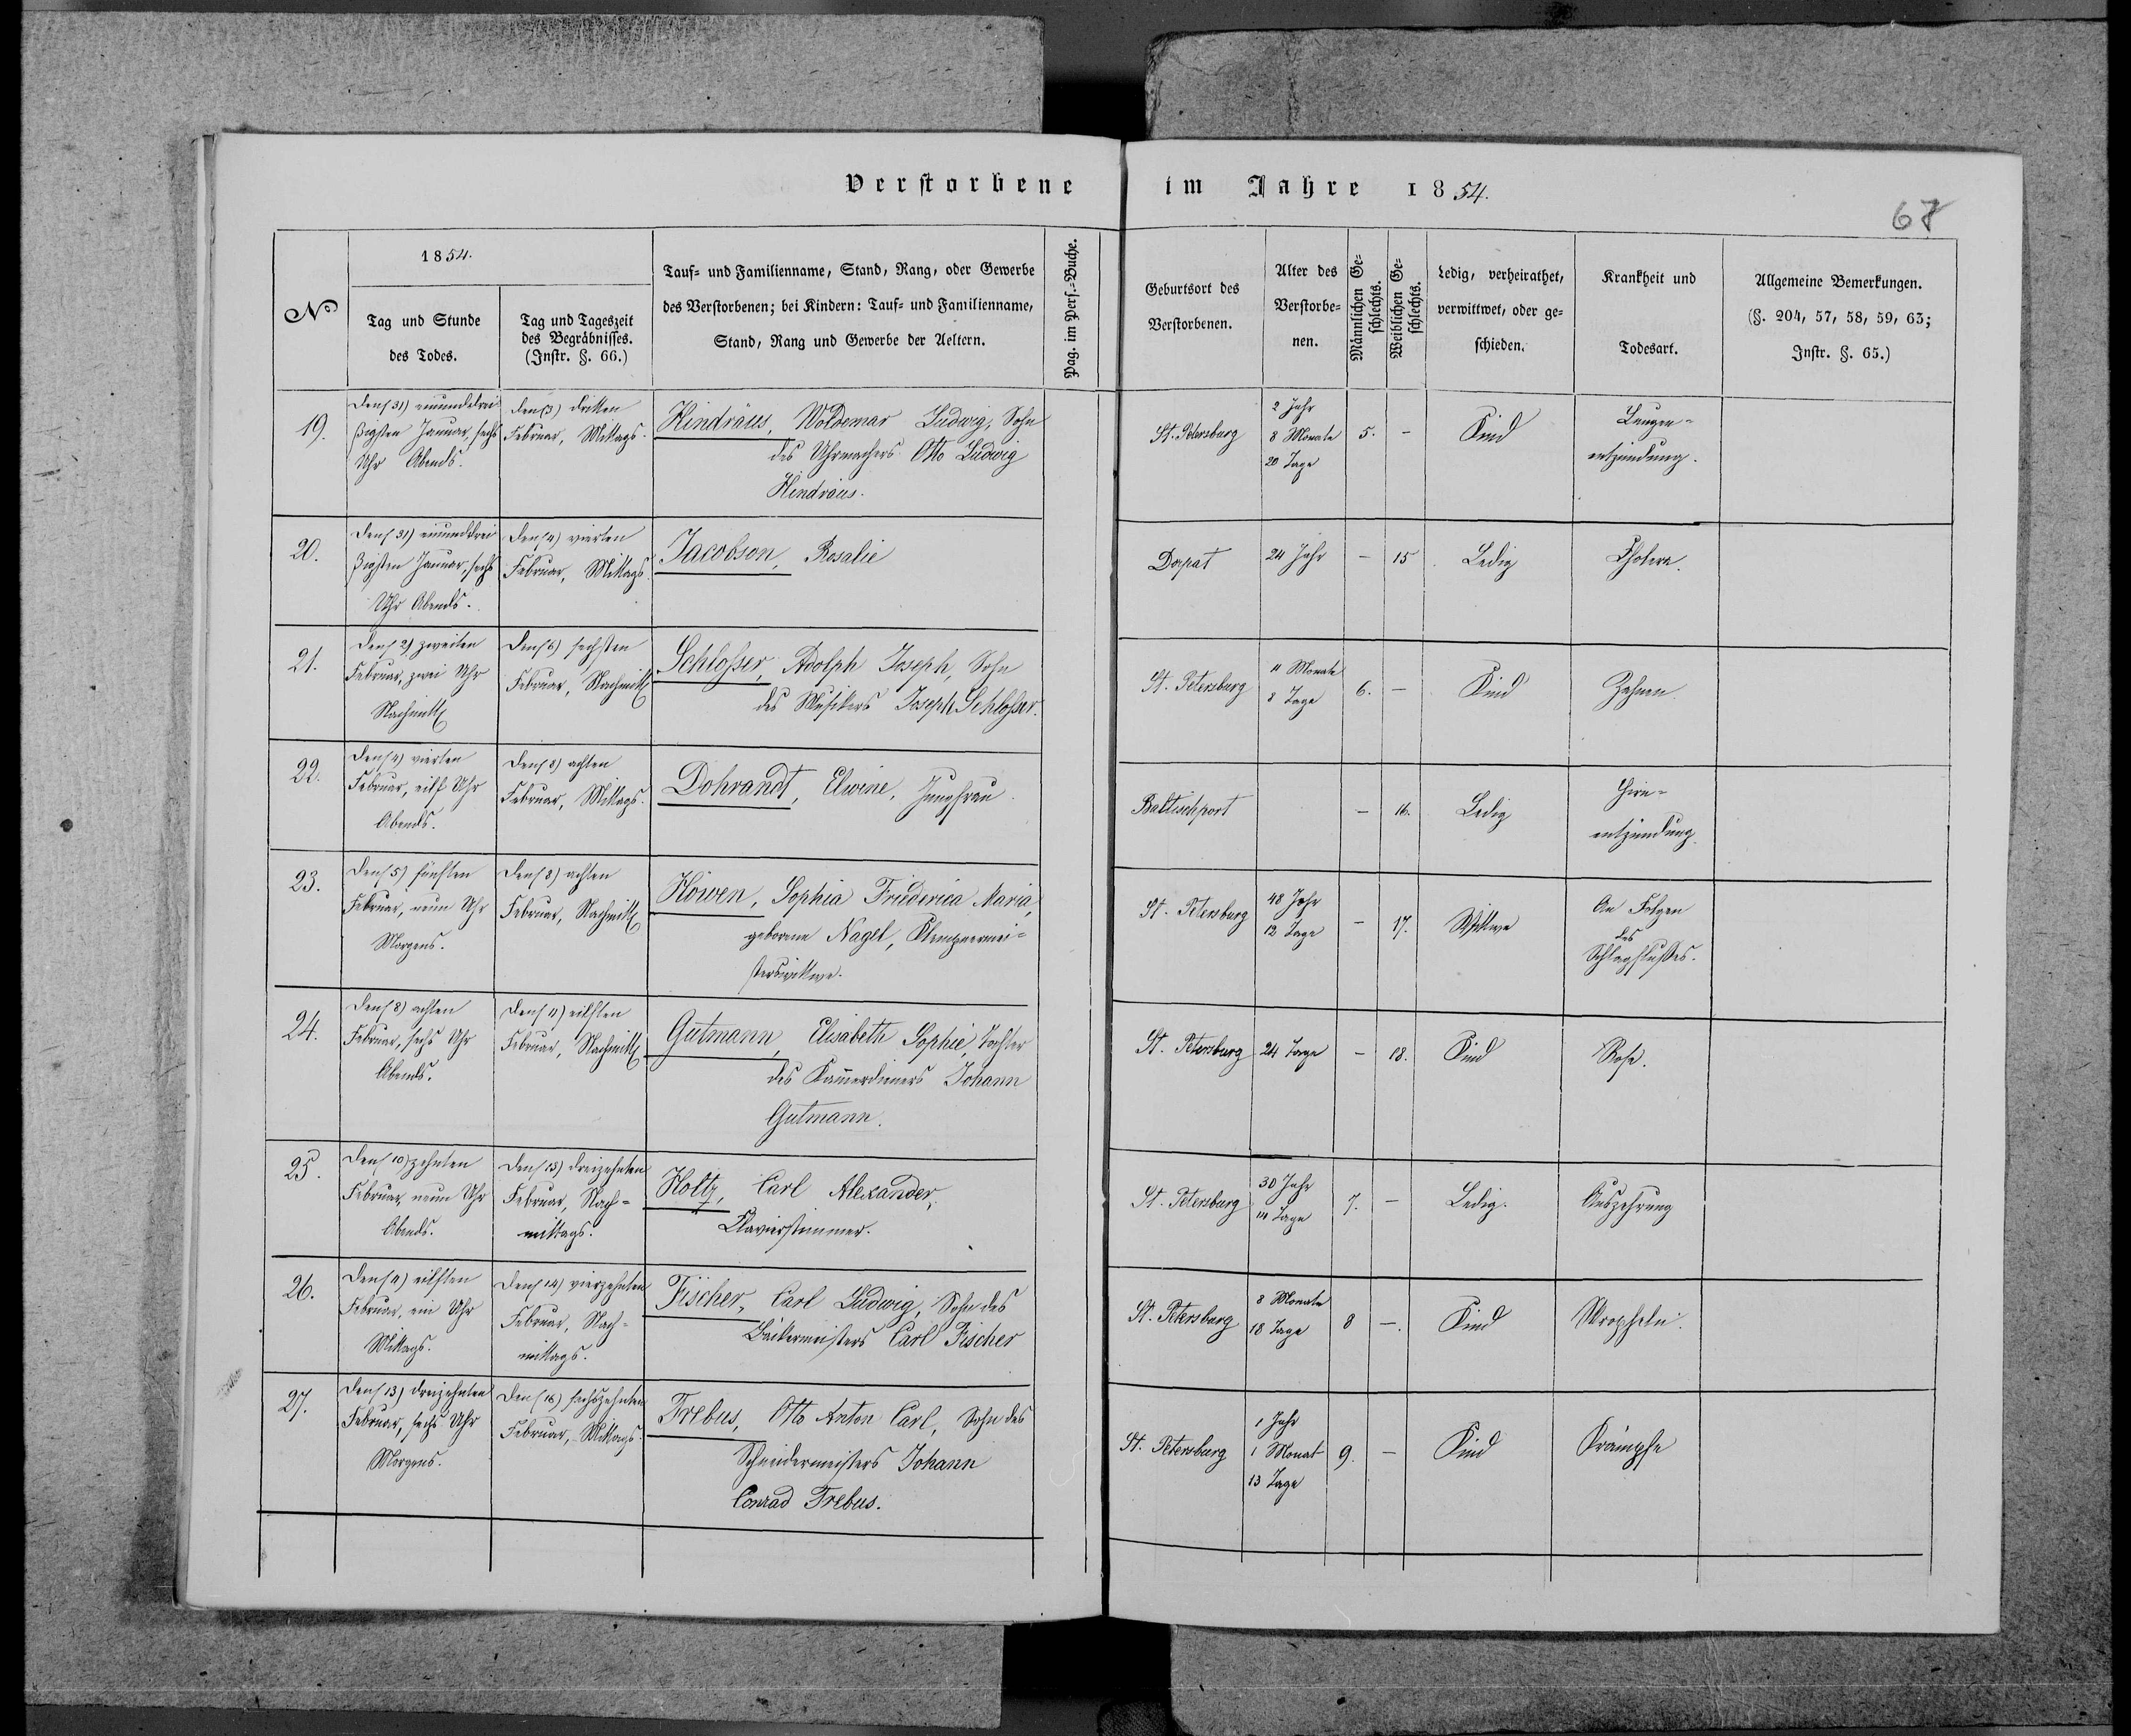 Verstorbene im Jahre 1854.
67
№
1854.
Tag und Stunde
des Todes.
Tag und Tageszeit
des Begräbnisses.
(Instr. §. 66.)
Tauf- und Familienname, Stand, Rang, oder Gewerbe
des Verstorbenen; bei Kindern: Tauf- und Familienname,
Stand, Rang und Gewerbe der Aeltern.
Pag. im Pers.-Buche.
Geburtsort des
Verstorbenen.
Alter des
Verstorbe-
nen.
Männlichen Ge-
schlechts.
Weiblichen Ge-
schlechts.
Ledig, verheirathet,
verwittwet, oder ge-
schieden.
Krankheit und
Todesart.
Allgemeine Bemerkungen.
(§. 204, 57, 58, 59, 63;
Instr. §. 65.)
19.
Den (31) einunddrei
ßigsten Januar, sechs
Uhr Abends.
Den (3) dritten
Februar, Mittags.
Hindräus, Woldemar Ludwig, Sohn
des Uhrmachers Otto Ludwig
Hindräus.
St. Petersburg
2 Jahr
8 Monate
20 Tage
5.
-
Kind
Lungen-
entzündung.
20.
Den (31) einunddrei
ßigsten Januar, sechs
Uhr Abends.
Den (4) vierten
Februar, Mittags.
Jacobson, Rosalie
Dorpat
24 Jahr
-
15
Ledig
Cholera.
21.
Den (2) zweiten
Februar, zwei Uhr
Nachmitt
Den (6) sechsten
Februar, Nachmitt
Schlosser, Adolph Joseph, Sohn
des Musikers Joseph Schlosser.
St. Petersburg
11 Monate
8 Tage
6.
-
Kind
Zahnen.
22.
Den (4) vierten
Februar, eilf Uhr
Abends.
Den (8) achten
Februar, Mittags.
Dohrandt, Elwine, Jungfrau.
Baltischport
-
16.
Ledig
Hirn-
entzündung.
23.
Den (5) fünften
Februar, neun Uhr
Morgens.
Den (8) achten
Februar, Nachmitt
Höwen, Sophia Friederica Maria,
geborene Nagel, Klempnermei-
sterswittwe.
St. Petersburg
48 Jahr
12 Tage
-
17.
Wittwe
An Folgen
des
Schlagflußes.
24.
Den (8) achten
Februar, sechs Uhr
Abends.
Den (11) eilften
Februar, Nachmitt
Gutmann, Elisabeth Sophie, Tochter
des Kammerdieners Johann
Gutmann.
St. Petersburg
24 Tage
-
18.
Kind
Rose.
25.
Den (10) zehnten
Februar, neun Uhr
Abends.
Den (13) dreizehnten
Februar, Nach-
mittags.
Holtz, Carl Alexander,
Clavierstimmer.
St. Petersburg
30 Jahr
14 Tage
7.
-
Ledig.
Auszehrung
26.
Den (11) eilften
Februar, ein Uhr
Mittags.
Den (14) vierzehnten
Februar, Nach-
mittags.
Fischer, Carl Ludwig, Sohn des
Bäckermeisters Carl Fischer
St. Petersburg
8 Monate
18 Tage
8
-.
Kind
Skropheln.
27.
Den (13) dreizehnten
Februar, sechs Uhr
Morgens.
Den (16) sechszehnten
Februar, Mittags.
Trebus, Otto Anton Carl, Sohn des
Schneidermeisters Johann
Conrad Trebus.
St. Petersburg
1 Jahr
1 Monat
13 Tage
9.
-
Kind
Krämpfe